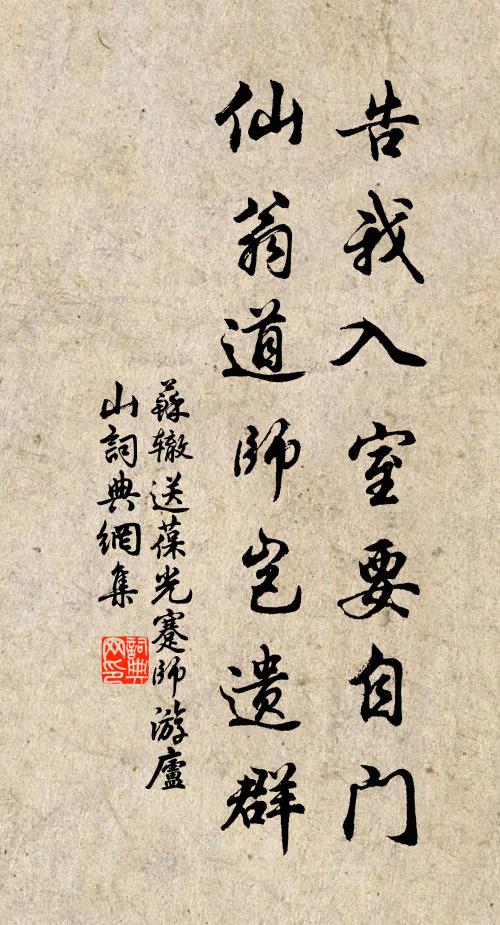 告我入室要自门
仙翁道师岂遗群
蘇辙送葆光蹇师游廬
山詞典網集
詞典
网印